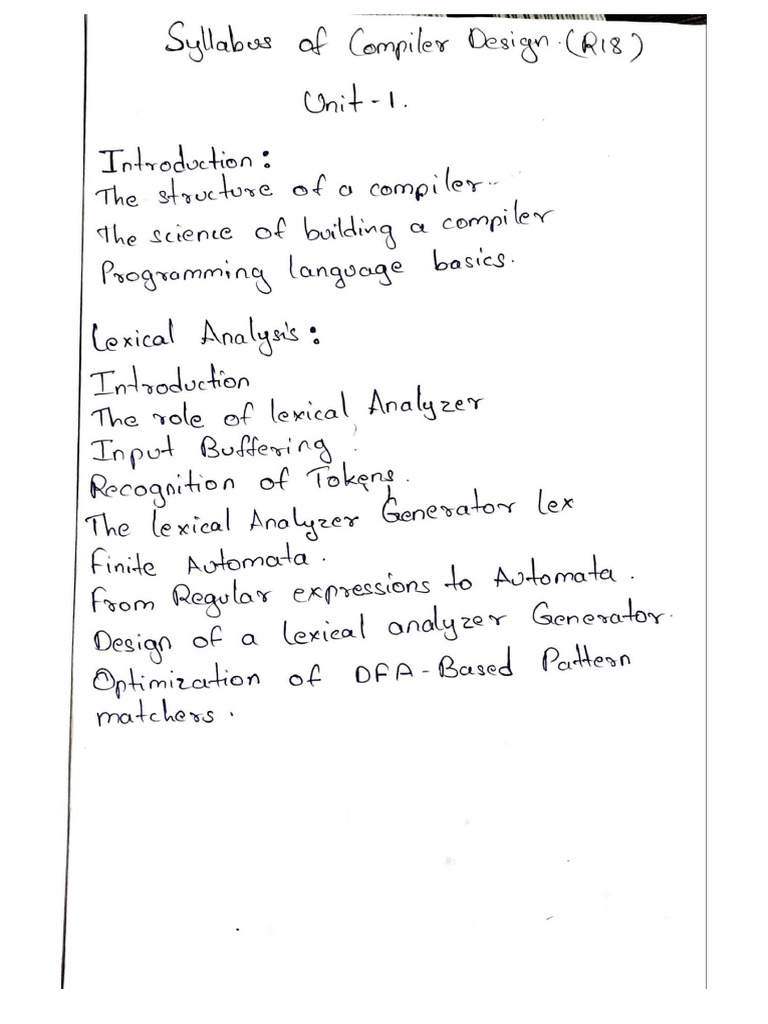 Syllabus of Compiler Design. (R18)
Unit - 1.
Introduction :
The structure of a compiler..
The science of building a compiler
Programming language basics.
Lexical Analysis :
Introduction
The role of lexical Analyzer
Input Buffering
Recognition of Tokens.
The lexical Analyzer Generator lex
Finite Automata.
From Regular expressions to Automata.
Design of a lexical analyzer Generator.
Optimization of DFA - Based Pattern
matchers.